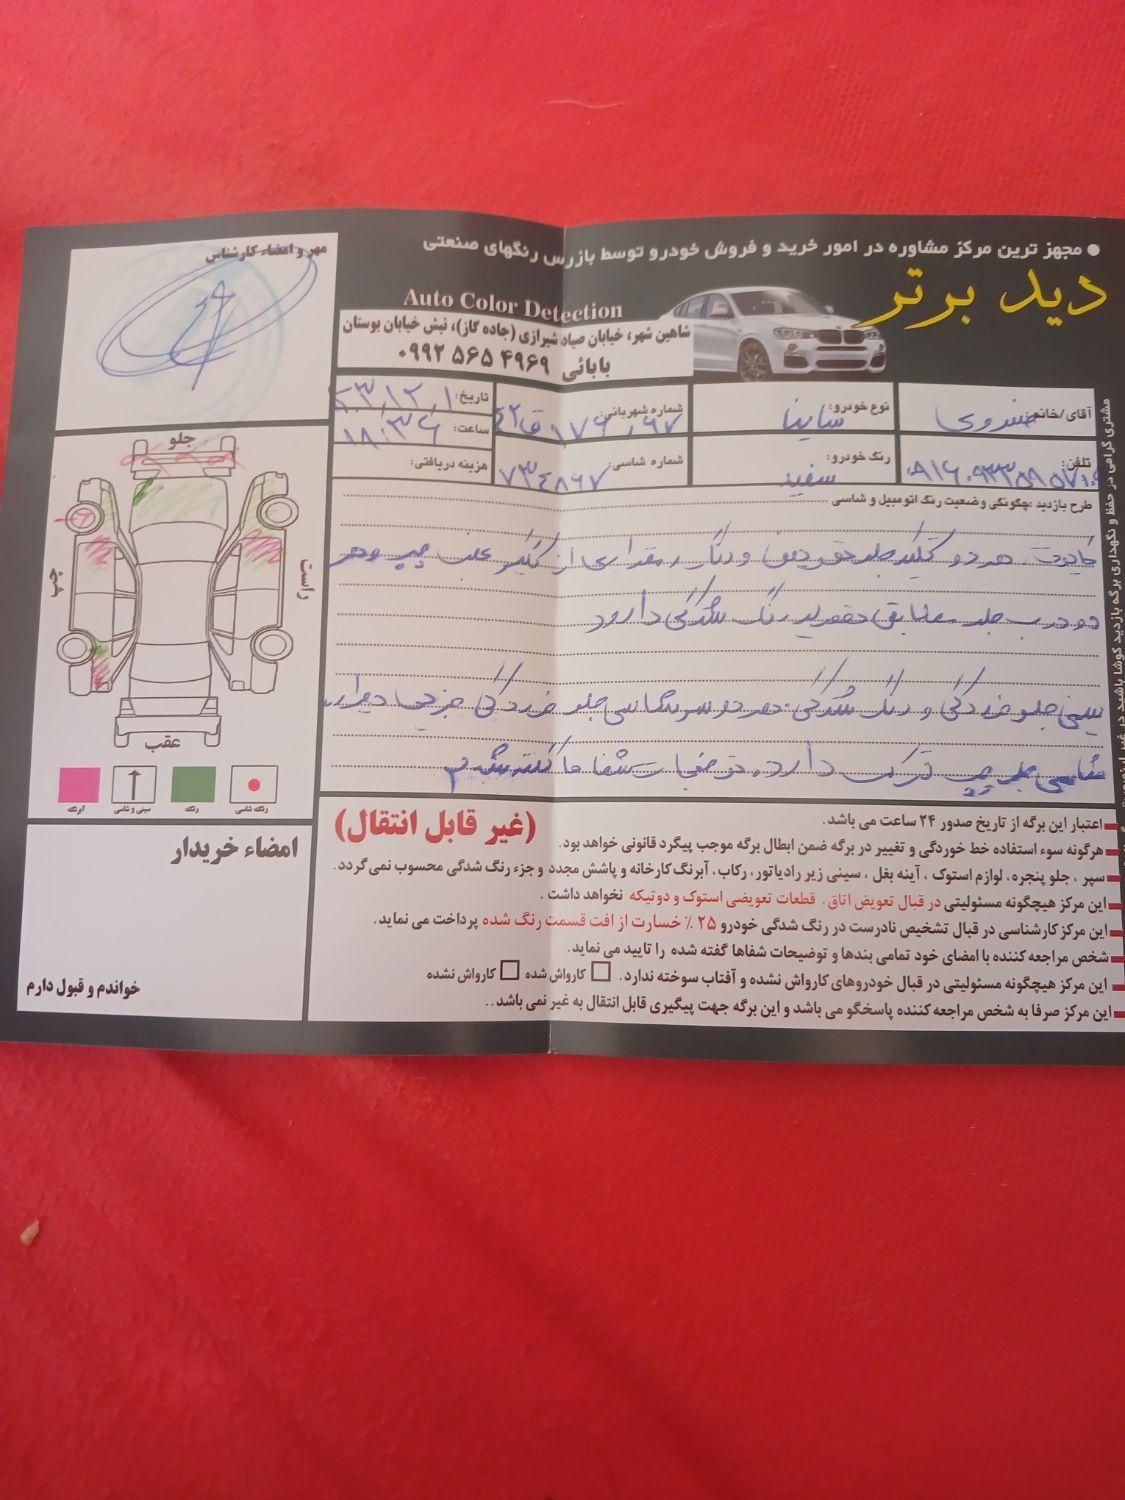 ● مجهز ترین مرکز مشاوره در امور خرید و فروش خودرو توسط بازرس رنگهای صنعتی
دید برتر
Auto Color Detection
شاهین شهر، خیابان صیاد شیرازی (جاده گاز)، نبش خیابان بوستان
بابائی ۰۹۹۲ ۵۶۵ ۴۹۶۹
مهر و امضاء کارشناس
آقای/خانم:
نوع خودرو: ساینا
شماره شهربانی:
تاریخ:
ساعت: ۱۸:۳۶
تلفن:
رنگ خودرو: سفید
شماره شاسی: ۷۳۴۸۶۷
هزینه دریافتی:
طرح بازدید :چگونگی وضعیت رنگ اتومبیل و شاسی
هر دو گلگیر جلو تعویض و رنگ، مقداری از گلگیر عقب چپ و هر
دو درب جلو مطابق تصویر رنگ شدگی دارد
سینی جلو خوردگی و رنگ شدگی. هر دو سر شاسی جلو خوردگی جزئی دارد.
شاسی جلو چپ ترک دارد. توضیحات شفاها گفته شد
جلو
چپ
راست
عقب
آبرنگ
سینی و شاسی
رنگ
رنگ شاسی
(غیر قابل انتقال)
اعتبار این برگه از تاریخ صدور ۲۴ ساعت می باشد.
هرگونه سوء استفاده خط خوردگی و تغییر در برگه ضمن ابطال برگه موجب پیگرد قانونی خواهد بود.
سپر ، جلو پنجره، لوازم استوک ، آینه بغل ، سینی زیر رادیاتور، رکاب، آبرنگ کارخانه و پاشش مجدد و جزء رنگ شدگی محسوب نمی گردد.
این مرکز هیچگونه مسئولیتی در قبال تعویض اتاق، قطعات تعویضی استوک و دوتیکه نخواهد داشت .
این مرکز کارشناسی در قبال تشخیص نادرست در رنگ شدگی خودرو ۲۵ ٪ خسارت از افت قسمت رنگ شده پرداخت می نماید.
شخص مراجعه کننده با امضای خود تمامی بندها و توضیحات شفاها گفته شده را تایید می نماید.
این مرکز هیچگونه مسئولیتی در قبال خودروهای کارواش نشده و آفتاب سوخته ندارد. کارواش شده کارواش نشده
این مرکز صرفا به شخص مراجعه کننده پاسخگو می باشد و این برگه جهت پیگیری قابل انتقال به غیر نمی باشد..
امضاء خریدار
خواندم و قبول دارم
مشتری گرامی در حفظ و نگهداری برگه بازدید کوشا باشید در غیر